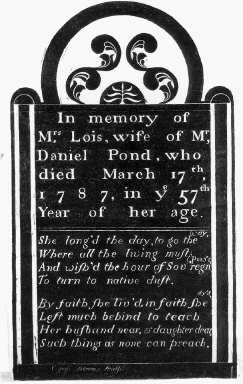 In memory of
Mrs Lois, wife of Mr,
Daniel Pond, who
died March 17th,
1787, in ye 57th
Year of her age.
She long'd the day, to go the way,
Where all the living must
And wish'd the hour of Sov'reign pow'r
To turn to native dust.
By faith, she liv'd, in faith, she
Left much behind to teach
Her husband near, & daughter dear
Such things as none can preach.